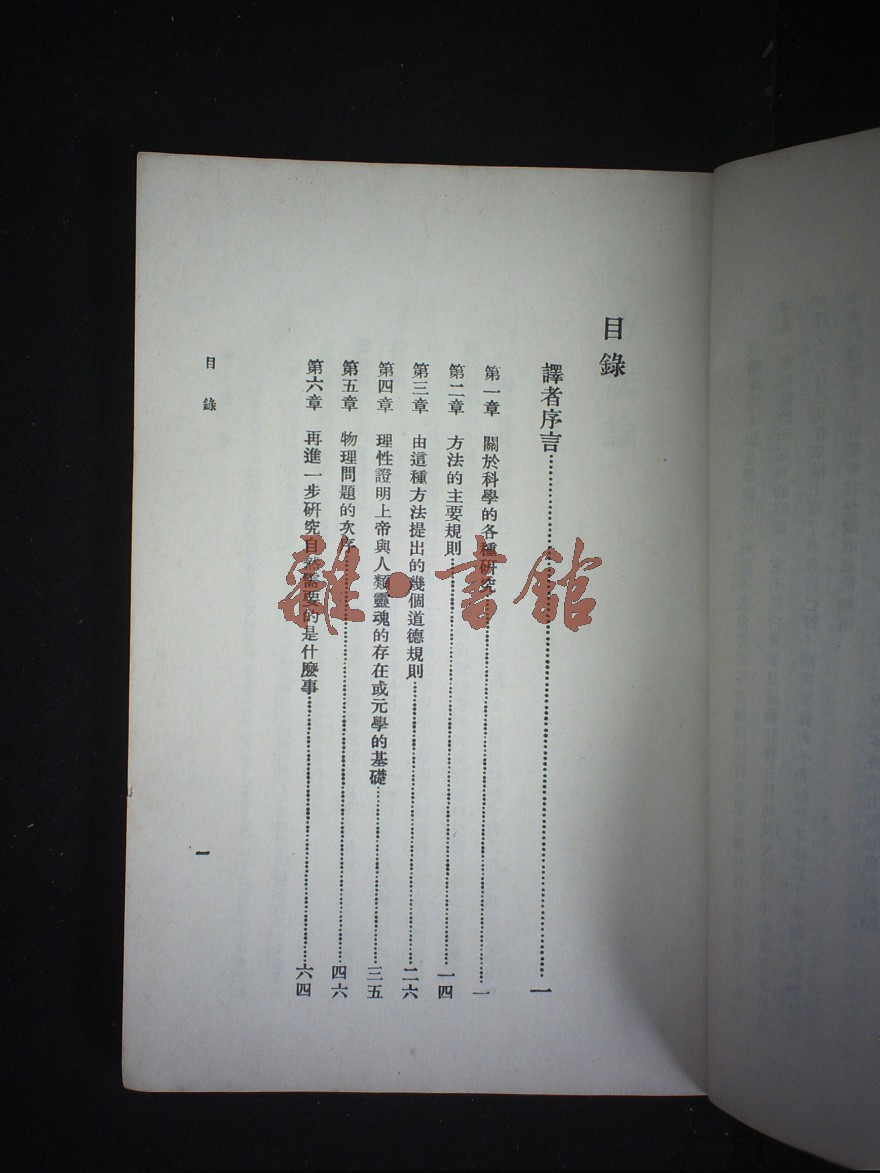 目錄
譯者序言……一
第一章 關於科學的各種研究……一
第二章 方法的主要規則……一四
第三章 由這種方法提出的幾個道德規則……二六
第四章 理性證明上帝與人類靈魂的存在或元學的基礎……三五
第五章 物理問題的次序……四六
第六章 再進一步研究自然需要的是什麼事……六四
目錄
一
雜·書館